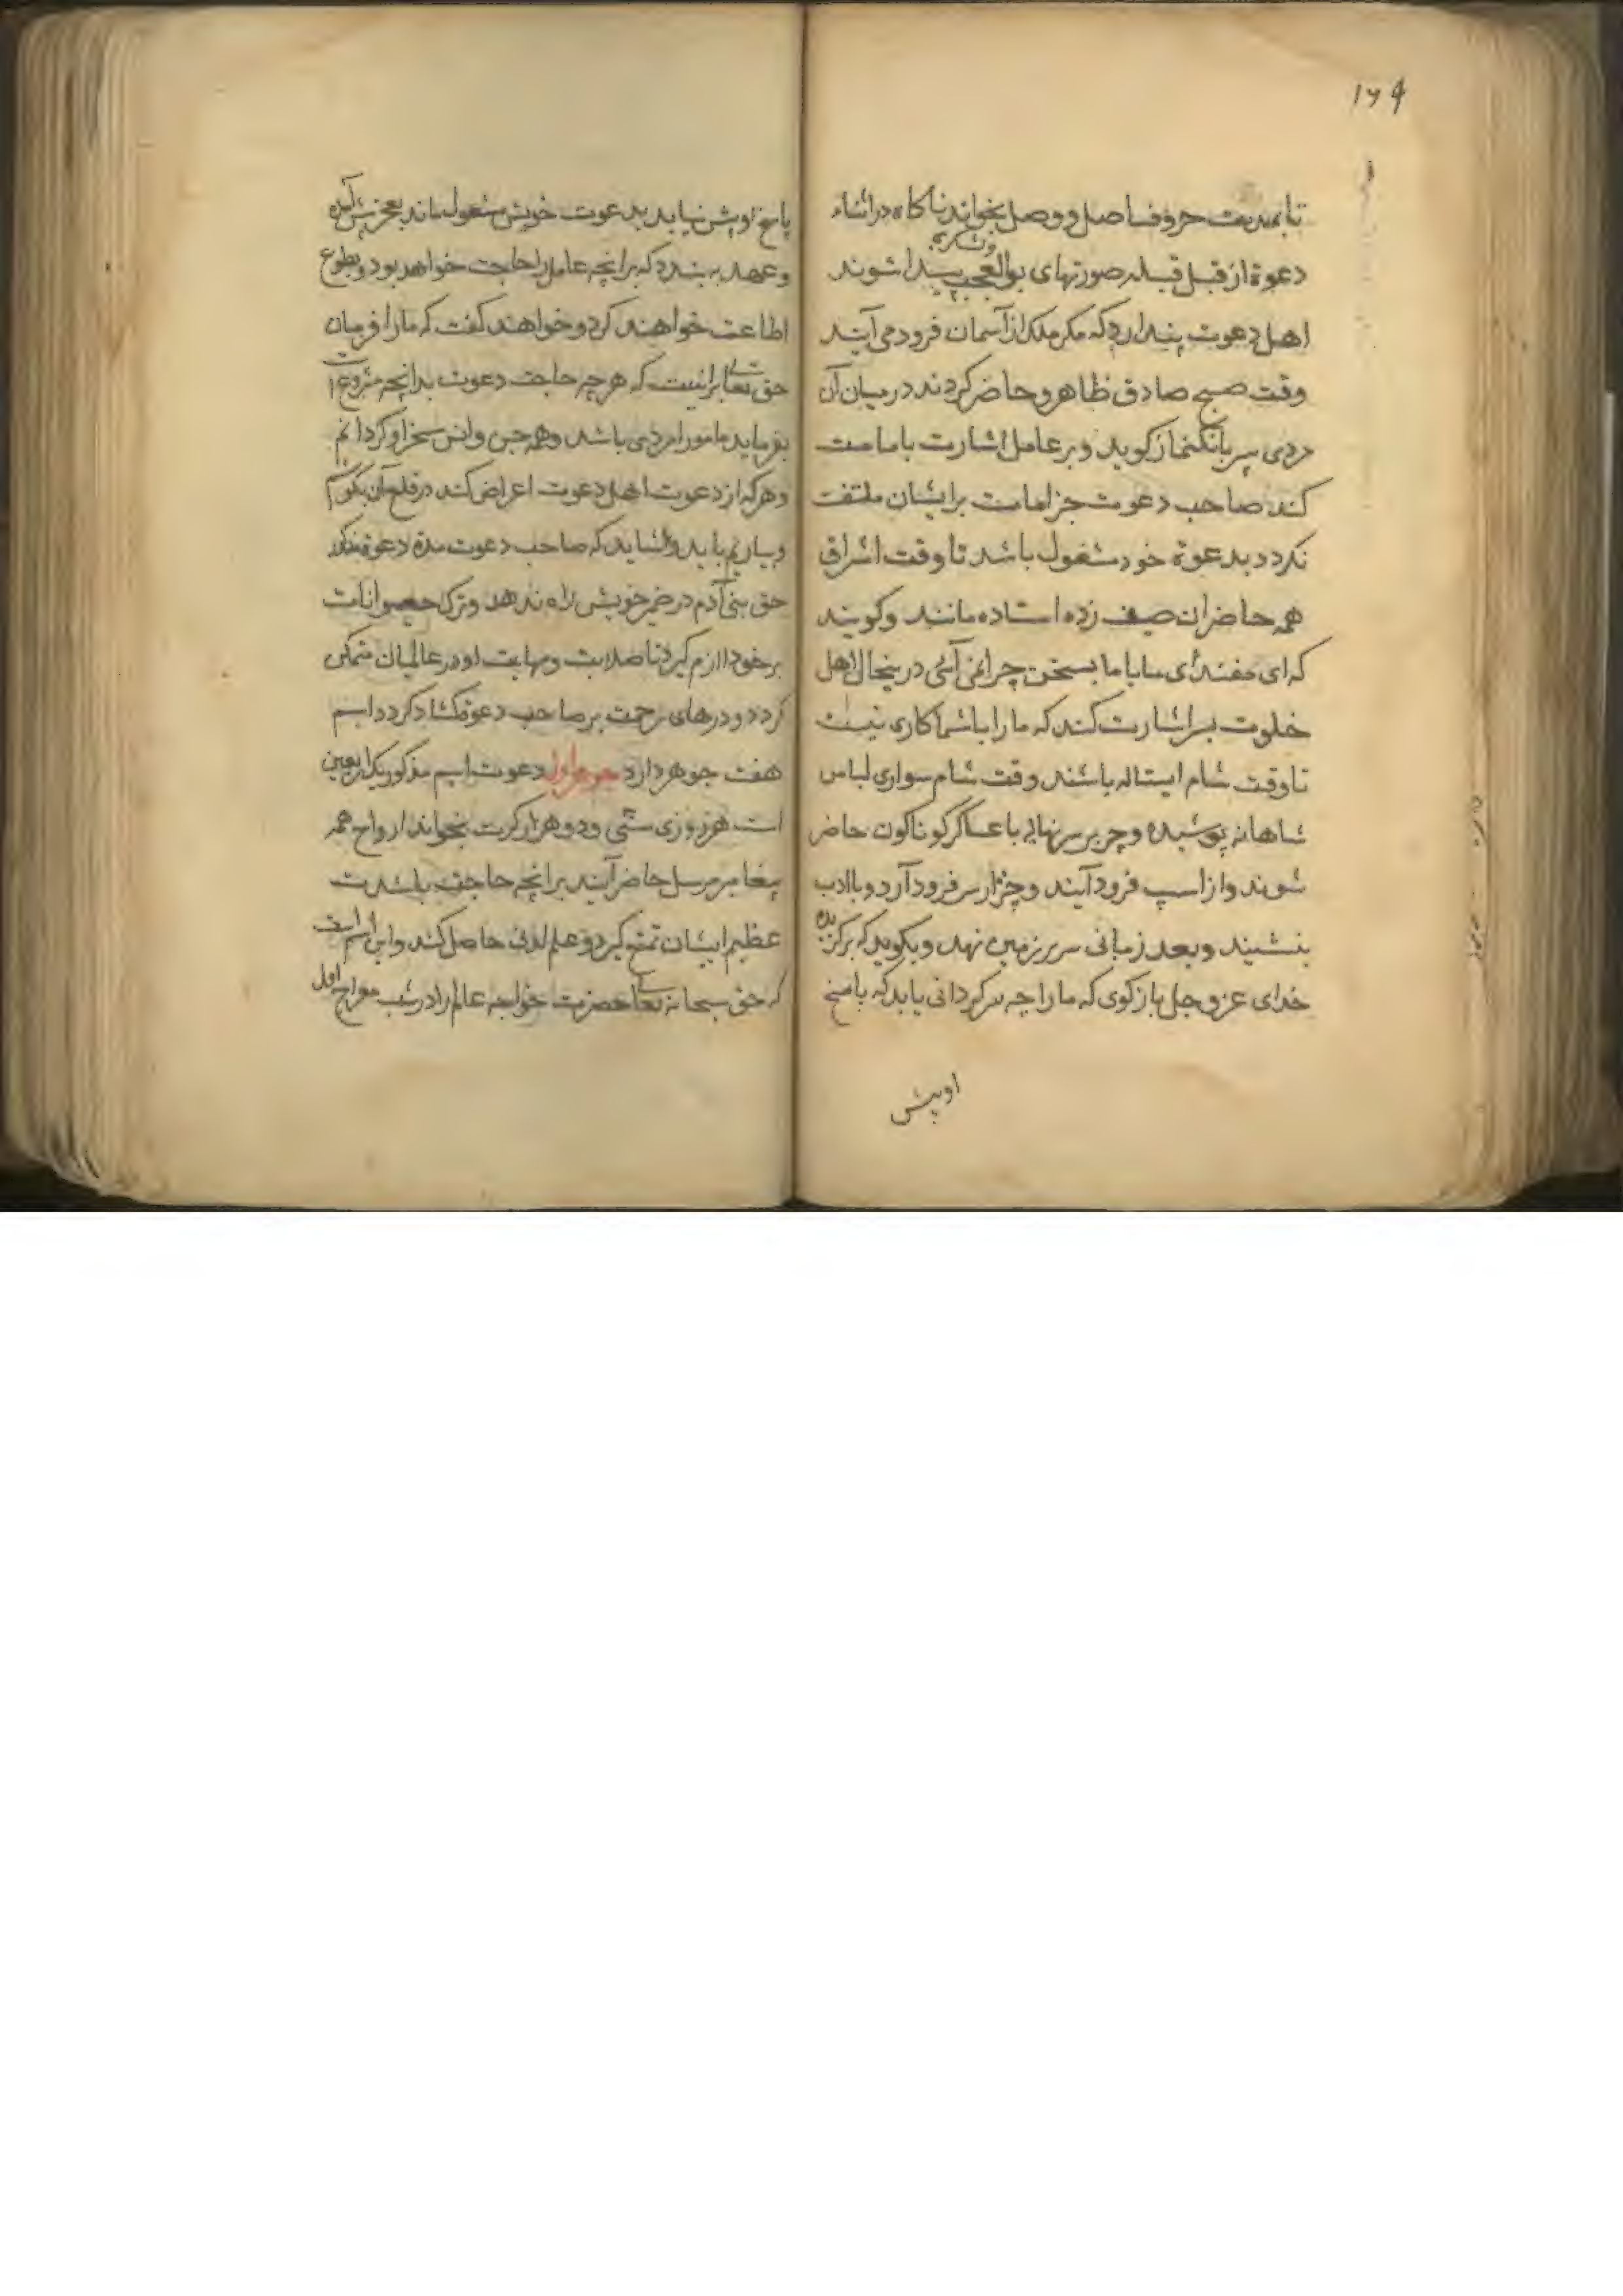 ۱۲۹
تا بمدت حروف اصل و وصل بخواند ناکاه در اثناء
دعوة از قبل قبله صورتهای بوالعجب پیدا شوند
اهل دعوت پندارد که مکر ملک از آسمان فرود می آیند
وقت صبح صادق ظاهر و حاضر کردند در میان آن
مردی پیر بانک نماز کوید و بر عامل اشارت بامامت
کند صاحب دعوت جز امامت بر ایشان ملتفت
نکردد بدعوة خود مشغول باشد تا وقت اشراق
همه حاضران صف زده استاده مانند و کویند
که ای با ما بسخن چرا نمی آئی درینحال اهل
خلوت بر اشارت کند که ما را با شما کاری نیست
تا وقت شام ایستاده باشند وقت شام سواری لباس
شاهانه پوشیده و چتر بر سر نهاده با عساکر کوناکون حاضر
شوند و از اسپ فرود آیند و سر فرود آرد و با ادب
بنشیند و بعد زمانی سر بر زمین نهد و بکوید که بر کزیده
خدای عز و جل باز کوی که ما را چه سرکردانی باید که پاسخ
او پیش
پاسخ او پیش نیاید بدعوت خویش مشغول ماند بعجز پیش آمده
و عهد به بندد که بر انچه عامل را حاجت خواهد بود و بطوع
اطاعت خواهند کرد و خواهند کفت که ما را فرمان
حق تعالی برانیست که هر چه حاجت دعوت بدانچه مشروع
بفرماید مامور امر وی باشد و همه جن و انس مسخر او کردانم
و هر که از دعوت اهل دعوت اعراض کند در قلع آن بکوشم
باید و شاید که صاحب دعوت مدة دعوة مذکور
حق بنی آدم در ضمیر خویش راه ندهد و ترک حیوانات
بر خود لازم کیرد تا صلابت و مهابت او در عالمیان متمکن
کردد و درهای رحمت بر صاحب دعوة کشاد کردد اسم
هفت جوهر دارد جوهر اول دعوت اسم مذکور یک اربعین
است هر روزی ستی و دو هزار کرت بخواند ارواح همه
پیغامبر مرسل حاضر آیند بر انچه حاجت باشد
عظیم ایشان تمتع کیرد و علم لدنی حاصل کند و این اسم است
که حق سبحانه تعالی حضرت خواجه عالم را در شب معراج اول